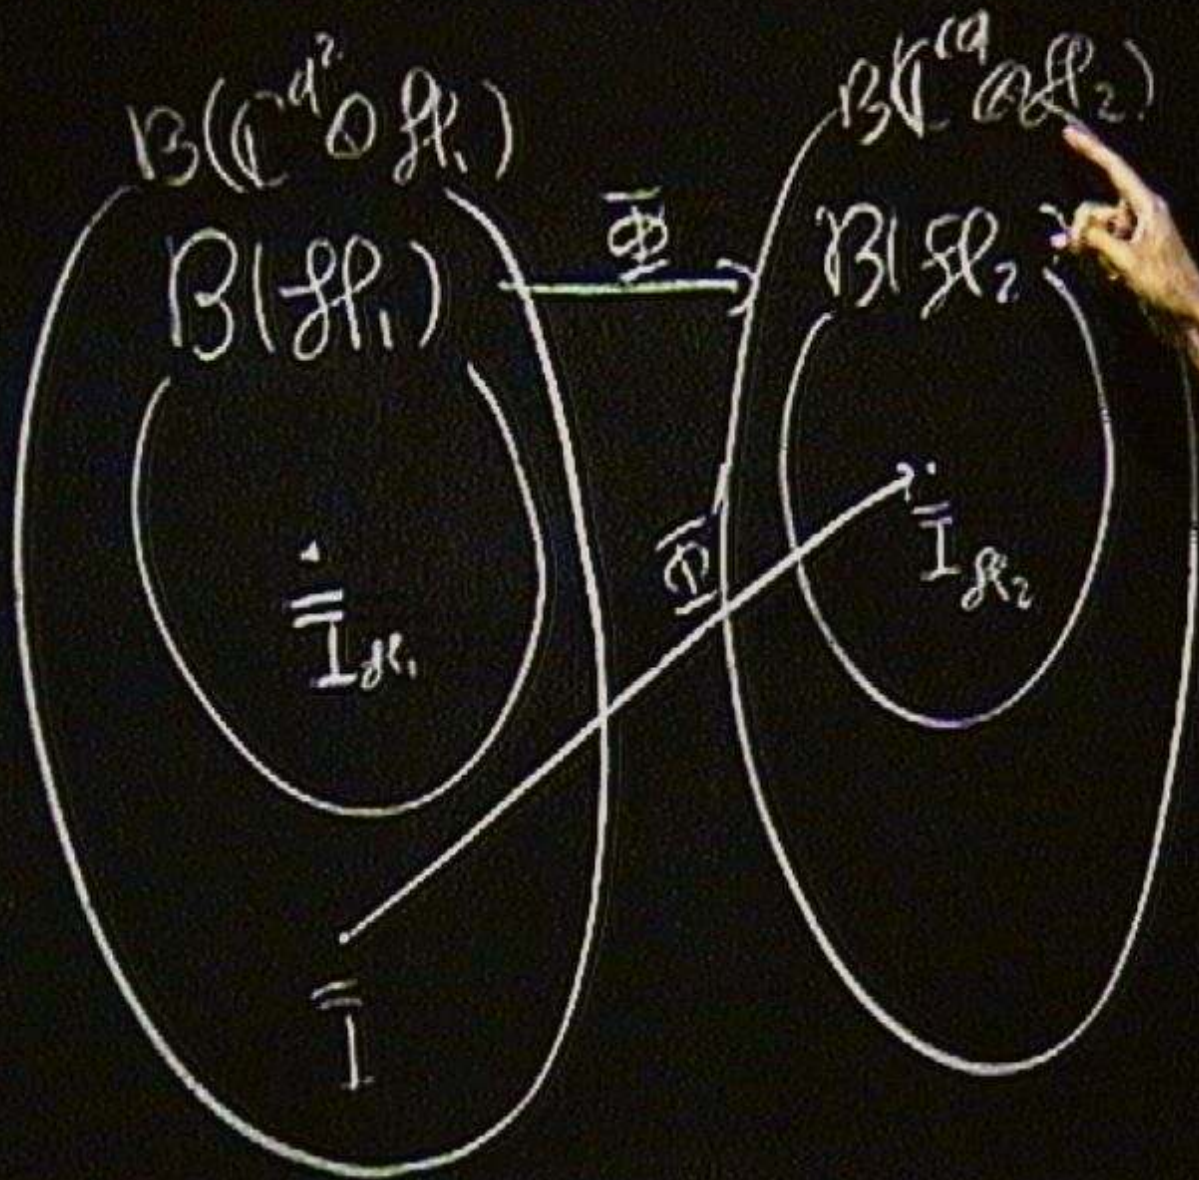 B(ℂ^{d²} ⊗ ℋ₁)
B(ℋ₁)
Φ
B(ℂ^{d} ⊗ ℋ₂)
B(ℋ₂)
Φ
I_{ℋ₁}
I_{ℋ₂}
I